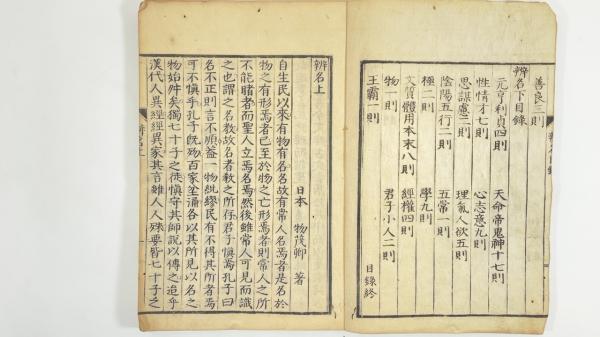 善良三則
辨名下目錄
元亨利貞四則 天命帝鬼神十七則
性情才七則 心志意九則
思謀慮二則 理氣人欲五則
陰陽五行二則 五常一則
極二則 學九則
文質體用本末八則 經權四則
物一則 君子小人二則
王霸一則 目錄終
辨名上
日本 物茂卿 著
自生民以來有物有名名故有常人名焉者是名於
物之有形焉者已至於物之亡形焉者則常人之所
不能睹者而聖人立焉名焉然後雖常人可見而識
之也謂之名教故名者教之所存君子慎焉孔子曰
名不正則言不順蓋一物紕繆民有不得其所者焉
可不慎乎孔子既歿百家坌涌各以其所見以名之
物始舛矣獨七十子之徒慎守其師說以傳之迨乎
漢代人異經經異家其言雖人人殊要皆七十子之